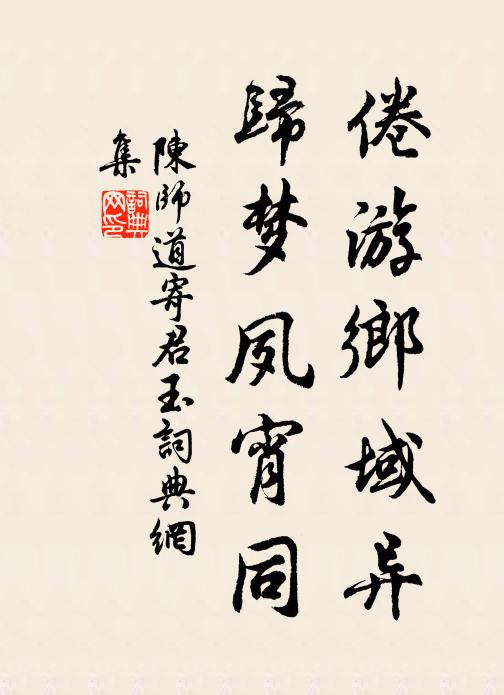 倦游鄉域异
歸梦夙宵同
陳師道寄君玉詞典網
集
詞典网印